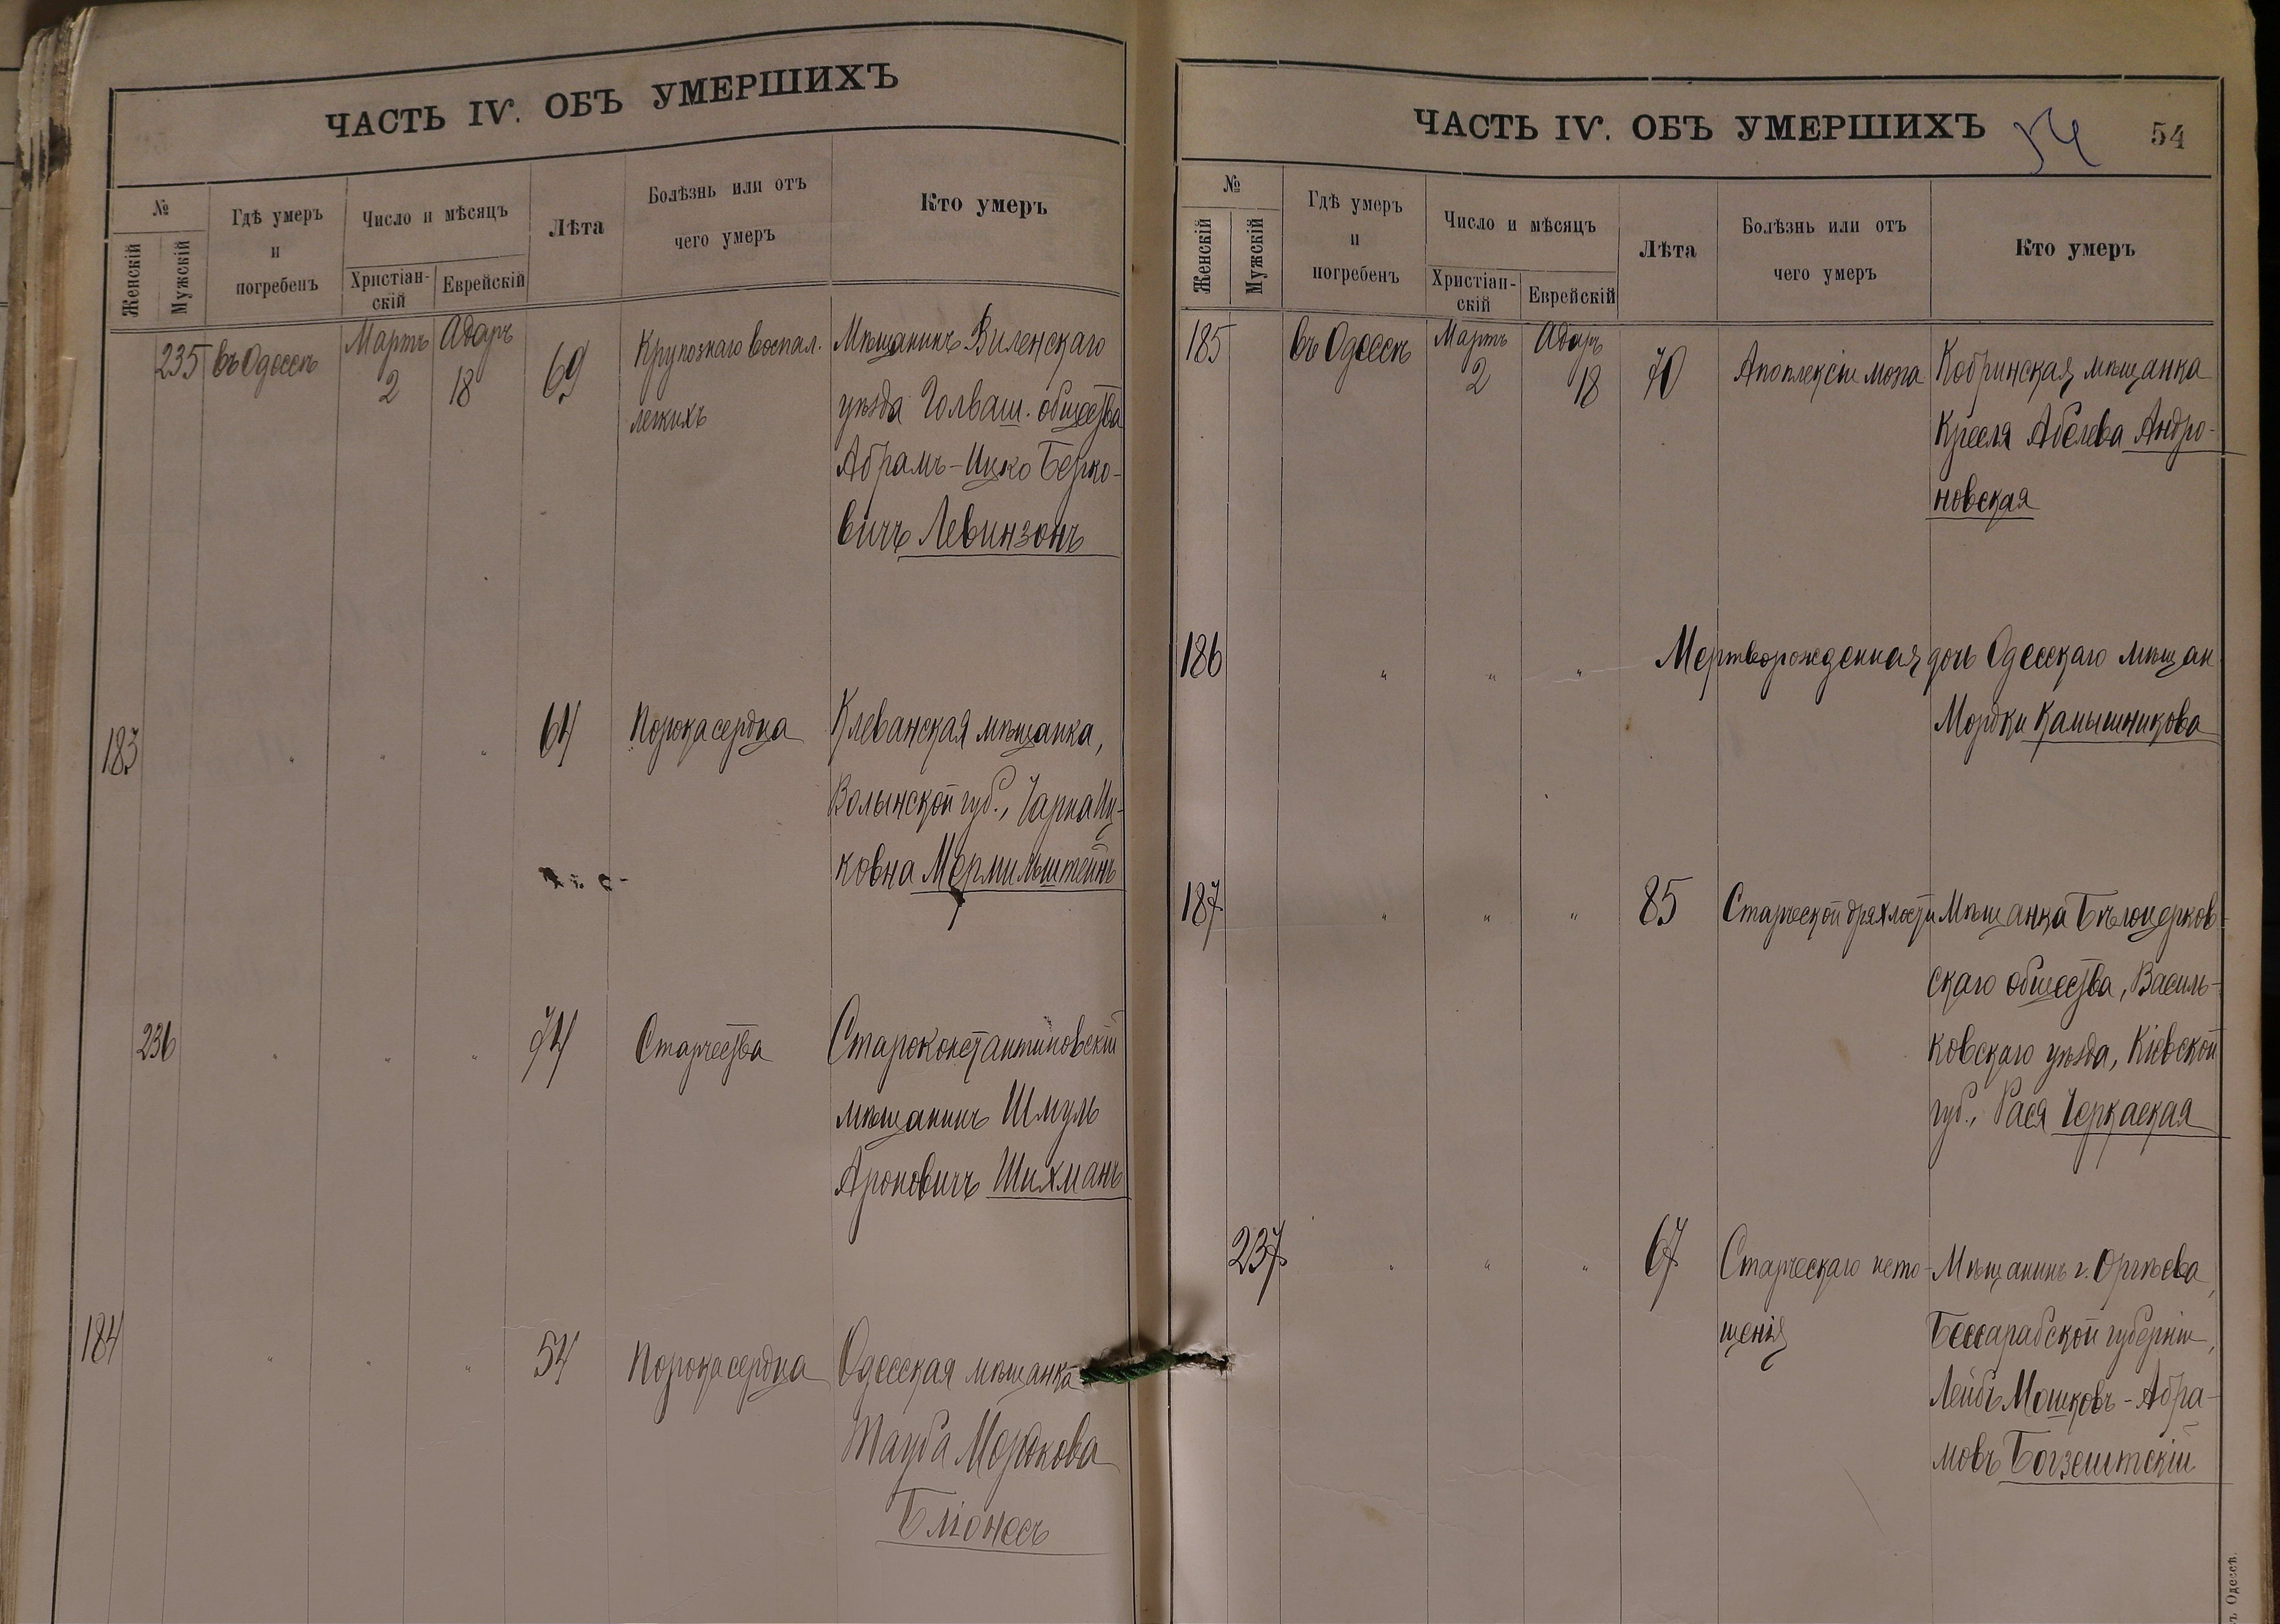 ЧАСТЬ IV. ОБЪ УМЕРШИХЪ
№
Женскій
Мужскій
Гдѣ умеръ
и
погребенъ
Число и мѣсяцъ
Христіан-
скій
Еврейскій
Лѣта
Болѣзнь или отъ
чего умеръ
Кто умеръ
235 въ Одессѣ Мартъ 2 Адаръ 18 69 Крупознаго воспал. Мѣщанинъ Виленскаго
легкихъ уѣзда Голваш. общества
Абрамъ-Ицко Берко-
вичъ Левинзонъ
183 " " " 64 Порока сердца Клеванская мѣщанка,
Волынской губ., Чарна Иц-
ковна Мермильштейнъ
236 " " " 74 Старчества Староконстантиновскій
мѣщанинъ Шмуль
Ароновичъ Шихманъ
184 " " " 54 Порока сердца Одесская мѣщанка
Тауба Мордкова
Бліонесъ
ЧАСТЬ IV. ОБЪ УМЕРШИХЪ
54
54
№
Женскій
Мужскій
Гдѣ умеръ
и
погребенъ
Число и мѣсяцъ
Христіан-
скій
Еврейскій
Лѣта
Болѣзнь или отъ
чего умеръ
Кто умеръ
185 въ Одессѣ Мартъ 2 Адаръ 18 70 Апоплексіи мозга Кобринская мѣщанка
Кресля Абелева Андро-
новская
186 " " " Мертворожденная дочь Одесскаго мѣщан.
Мордки Камышникова
187 " " " 85 Старческой дряхлости Мѣщанка Бѣлоцерков-
скаго общества, Василь-
ковскаго уѣзда, Кіевской
губ., Рася Черкаская
237 " " " 67 Старческаго исто- Мѣщанинъ г. Оргѣева,
щенія Бессарабской губерніи,
Лейбъ Мошковъ-Абра-
мовъ Богзештскій
ъ Одессѣ.